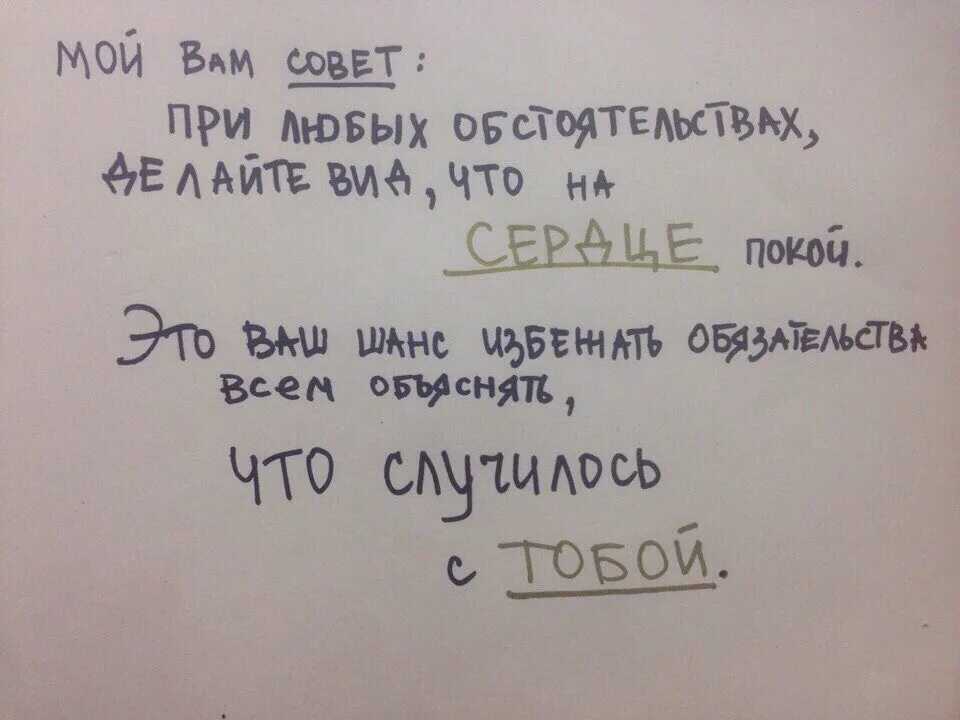 МОЙ ВАМ СОВЕТ:
ПРИ ЛЮБЫХ ОБСТОЯТЕЛЬСТВАХ,
ДЕЛАЙТЕ ВИД, ЧТО НА
СЕРДЦЕ ПОКОЙ.
ЭТО ВАШ ШАНС ИЗБЕЖАТЬ ОБЯЗАТЕЛЬСТВА
ВСЕМ ОБЪЯСНЯТЬ,
ЧТО СЛУЧИЛОСЬ
С ТОБОЙ.